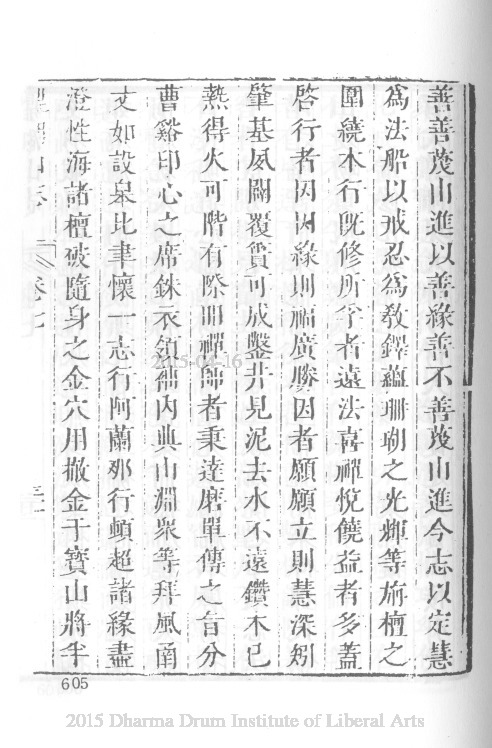 善善蔑由進以善緣善不善蔑由進今志以定慧
為法船以戒忍為教鐸蘊珊瑚之光輝等旃檀之
圍繞本行既修所孚者遠法喜禪悅饒益者多蓋
啓行者因因緣則福廣勝因者願願立則慧深矧
肇基夙闢覆簣可成鑿井見泥去水不遠鑽木已
熱得火可階有際明禪師者秉達磨單傳之旨分
曹谿印心之席銖衣領袖內典山淵眾等拜風甬
丈如設皋比聿懷一志行阿蘭那行頓超諸緣盡
澄性海諸檀破隨身之金穴用撒金于寶山將乎
山志 卷七
605
2015-04-16
2015 Dharma Drum Institute of Liberal Arts